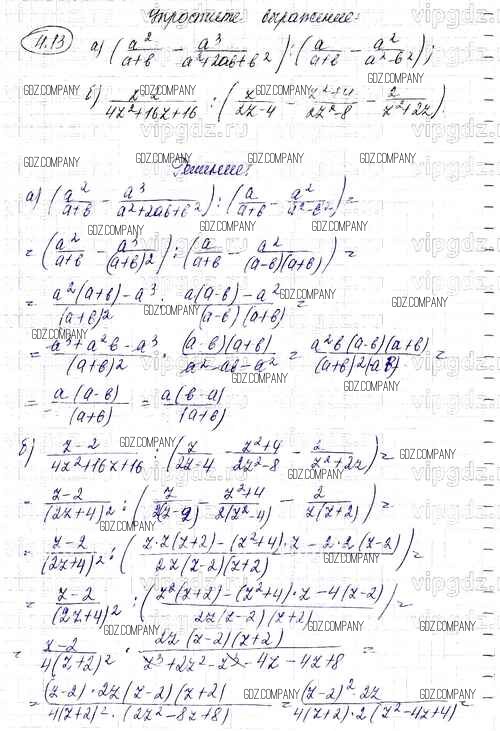 Упростите выражение:
11.13 а) (a²/(a+b) − a³/(a²+2ab+b²)) : (a/(a+b) − a²/(a²−b²));
б) (z−2)/(4z²+16z+16) : (z/(2z−4) − (z²+4)/(2z²−8) − 2/(z²+2z)).
Решение:
а) (a²/(a+b) − a³/(a²+2ab+b²)) : (a/(a+b) − a²/(a²−b²)) =
= (a²/(a+b) − a³/(a+b)²) : (a/(a+b) − a²/((a−b)(a+b))) =
= (a²(a+b)−a³)/(a+b)² : (a(a−b)−a²)/((a−b)(a+b)) =
= (a³+a²b−a³)/(a+b)² · ((a−b)(a+b))/(a²−ab−a²) = (a²b(a−b)(a+b))/((a+b)²(ab)) =
= (a(a−b))/(a+b) = (a(b−a))/(a+b)
б) (z−2)/(4z²+16z+16) : (z/(2z−4) − (z²+4)/(2z²−8) − 2/(z²+2z)) =
= (z−2)/(2z+4)² : (z/(2(z−2)) − (z²+4)/(2(z²−4)) − 2/(z(z+2))) =
= (z−2)/(2z+4)² : ((z·z(z+2)−(z²+4)·z−2·2(z−2))/(2z(z−2)(z+2))) =
= (z−2)/(2z+4)² : ((z²(z+2)−(z²+4)·z−4(z−2))/(2z(z−2)(z+2))) =
= (z−2)/(4(z+2)²) · (2z(z−2)(z+2))/(z³+2z²−z³−4z−4z+8) =
= ((z−2)·2z(z−2)(z+2))/(4(z+2)²·(2z²−8z+8)) = ((z−2)²·2z)/(4(z+2)·2(z²−4z+4)) =